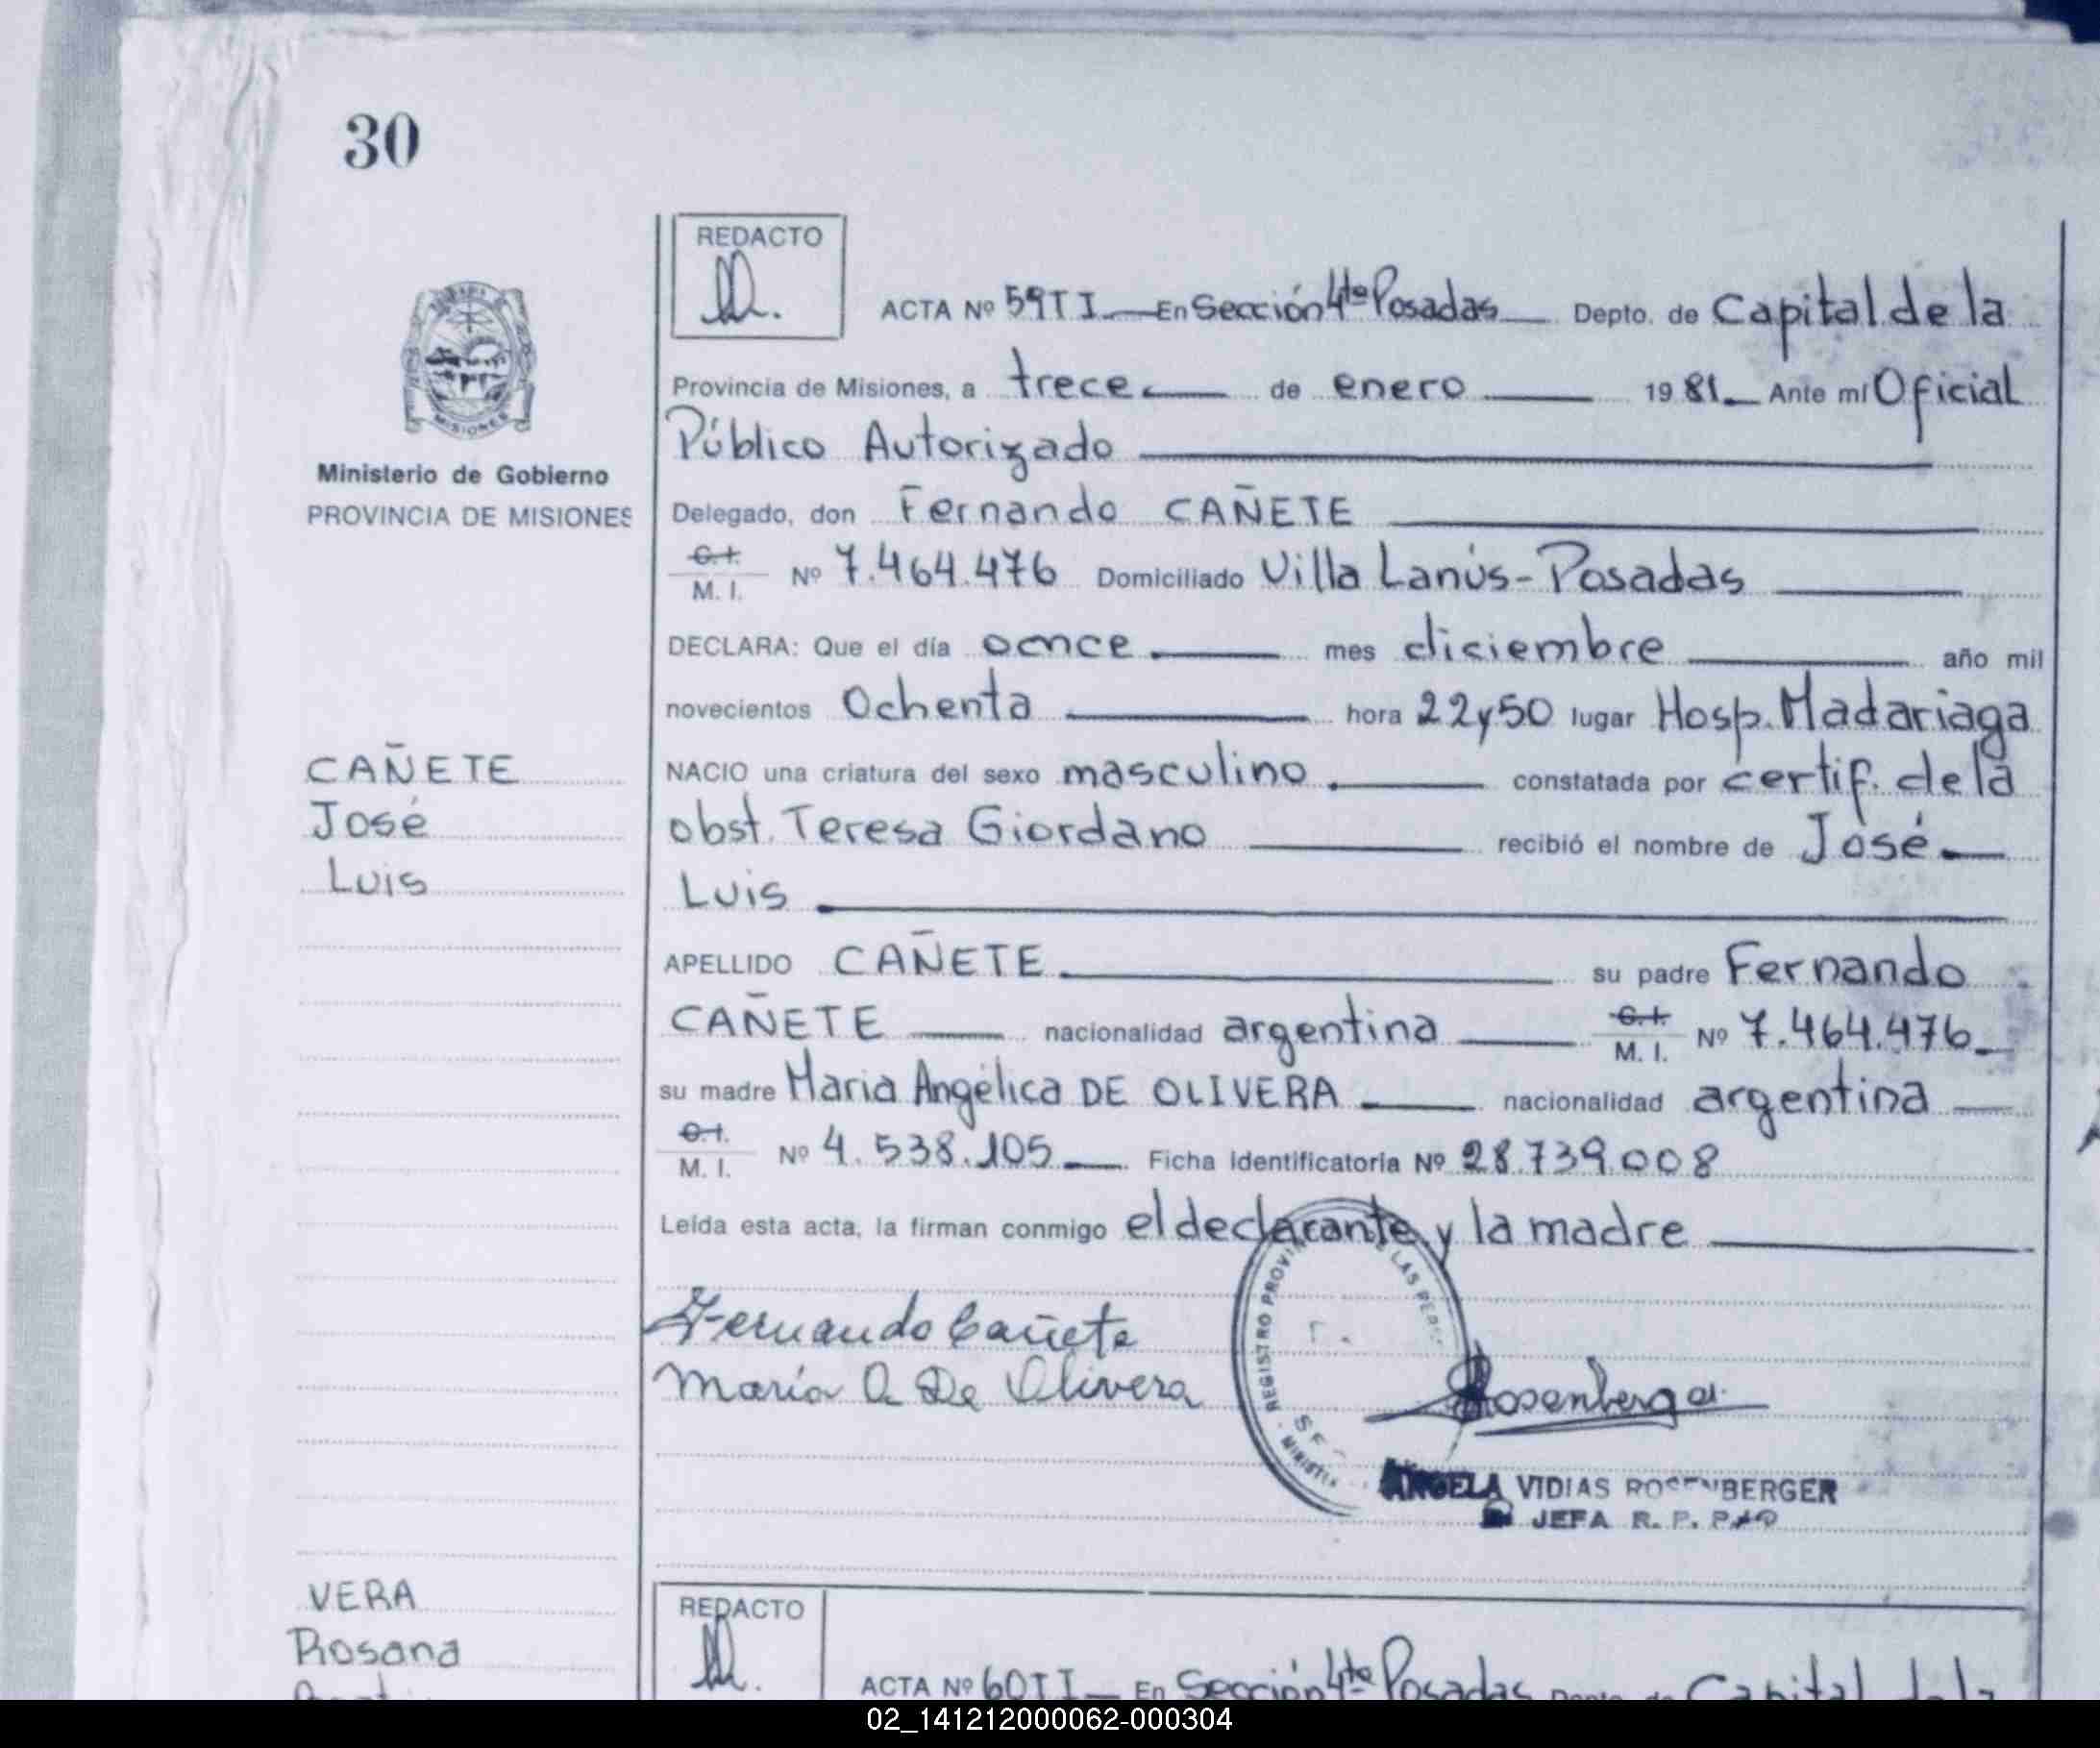 30
REDACTO
ACTA Nº 59 T I. En Sección 4ta Posadas Depto. de Capital de la
Provincia de Misiones, a trece de enero 1981 Ante mí Oficial
Público Autorizado
Delegado, don Fernando CAÑETE
C.I.
M. I. Nº 7.464.476 Domiciliado Villa Lanús - Posadas
DECLARA: Que el día ocnce mes diciembre año mil
novecientos Ochenta hora 22y50 lugar Hosp. Madariaga
NACIO una criatura del sexo masculino constatada por certif. de la
obst. Teresa Giordano recibió el nombre de José
Luis
APELLIDO CAÑETE su padre Fernando
CAÑETE nacionalidad argentina C.I. M. I. Nº 7.464.476
su madre Maria Angélica DE OLIVERA nacionalidad argentina
C.I.
M. I. Nº 4.538.105 Ficha Identificatoria Nº 28.739.008
Leída esta acta, la firman conmigo el declarante y la madre
Fernando Cañete
María A De Olivera
Rosenberger
REGISTRO PROVIN LAS PER
ANGELA VIDIAS ROSENBERGER
JEFA R. P.
MISIONES
Ministerio de Gobierno
PROVINCIA DE MISIONES
CAÑETE
José
Luis
VERA
Rosana
REDACTO
ACTA Nº 60 T I En Sección 4ta Posadas Depto. de Capital de la
02_141212000062-000304